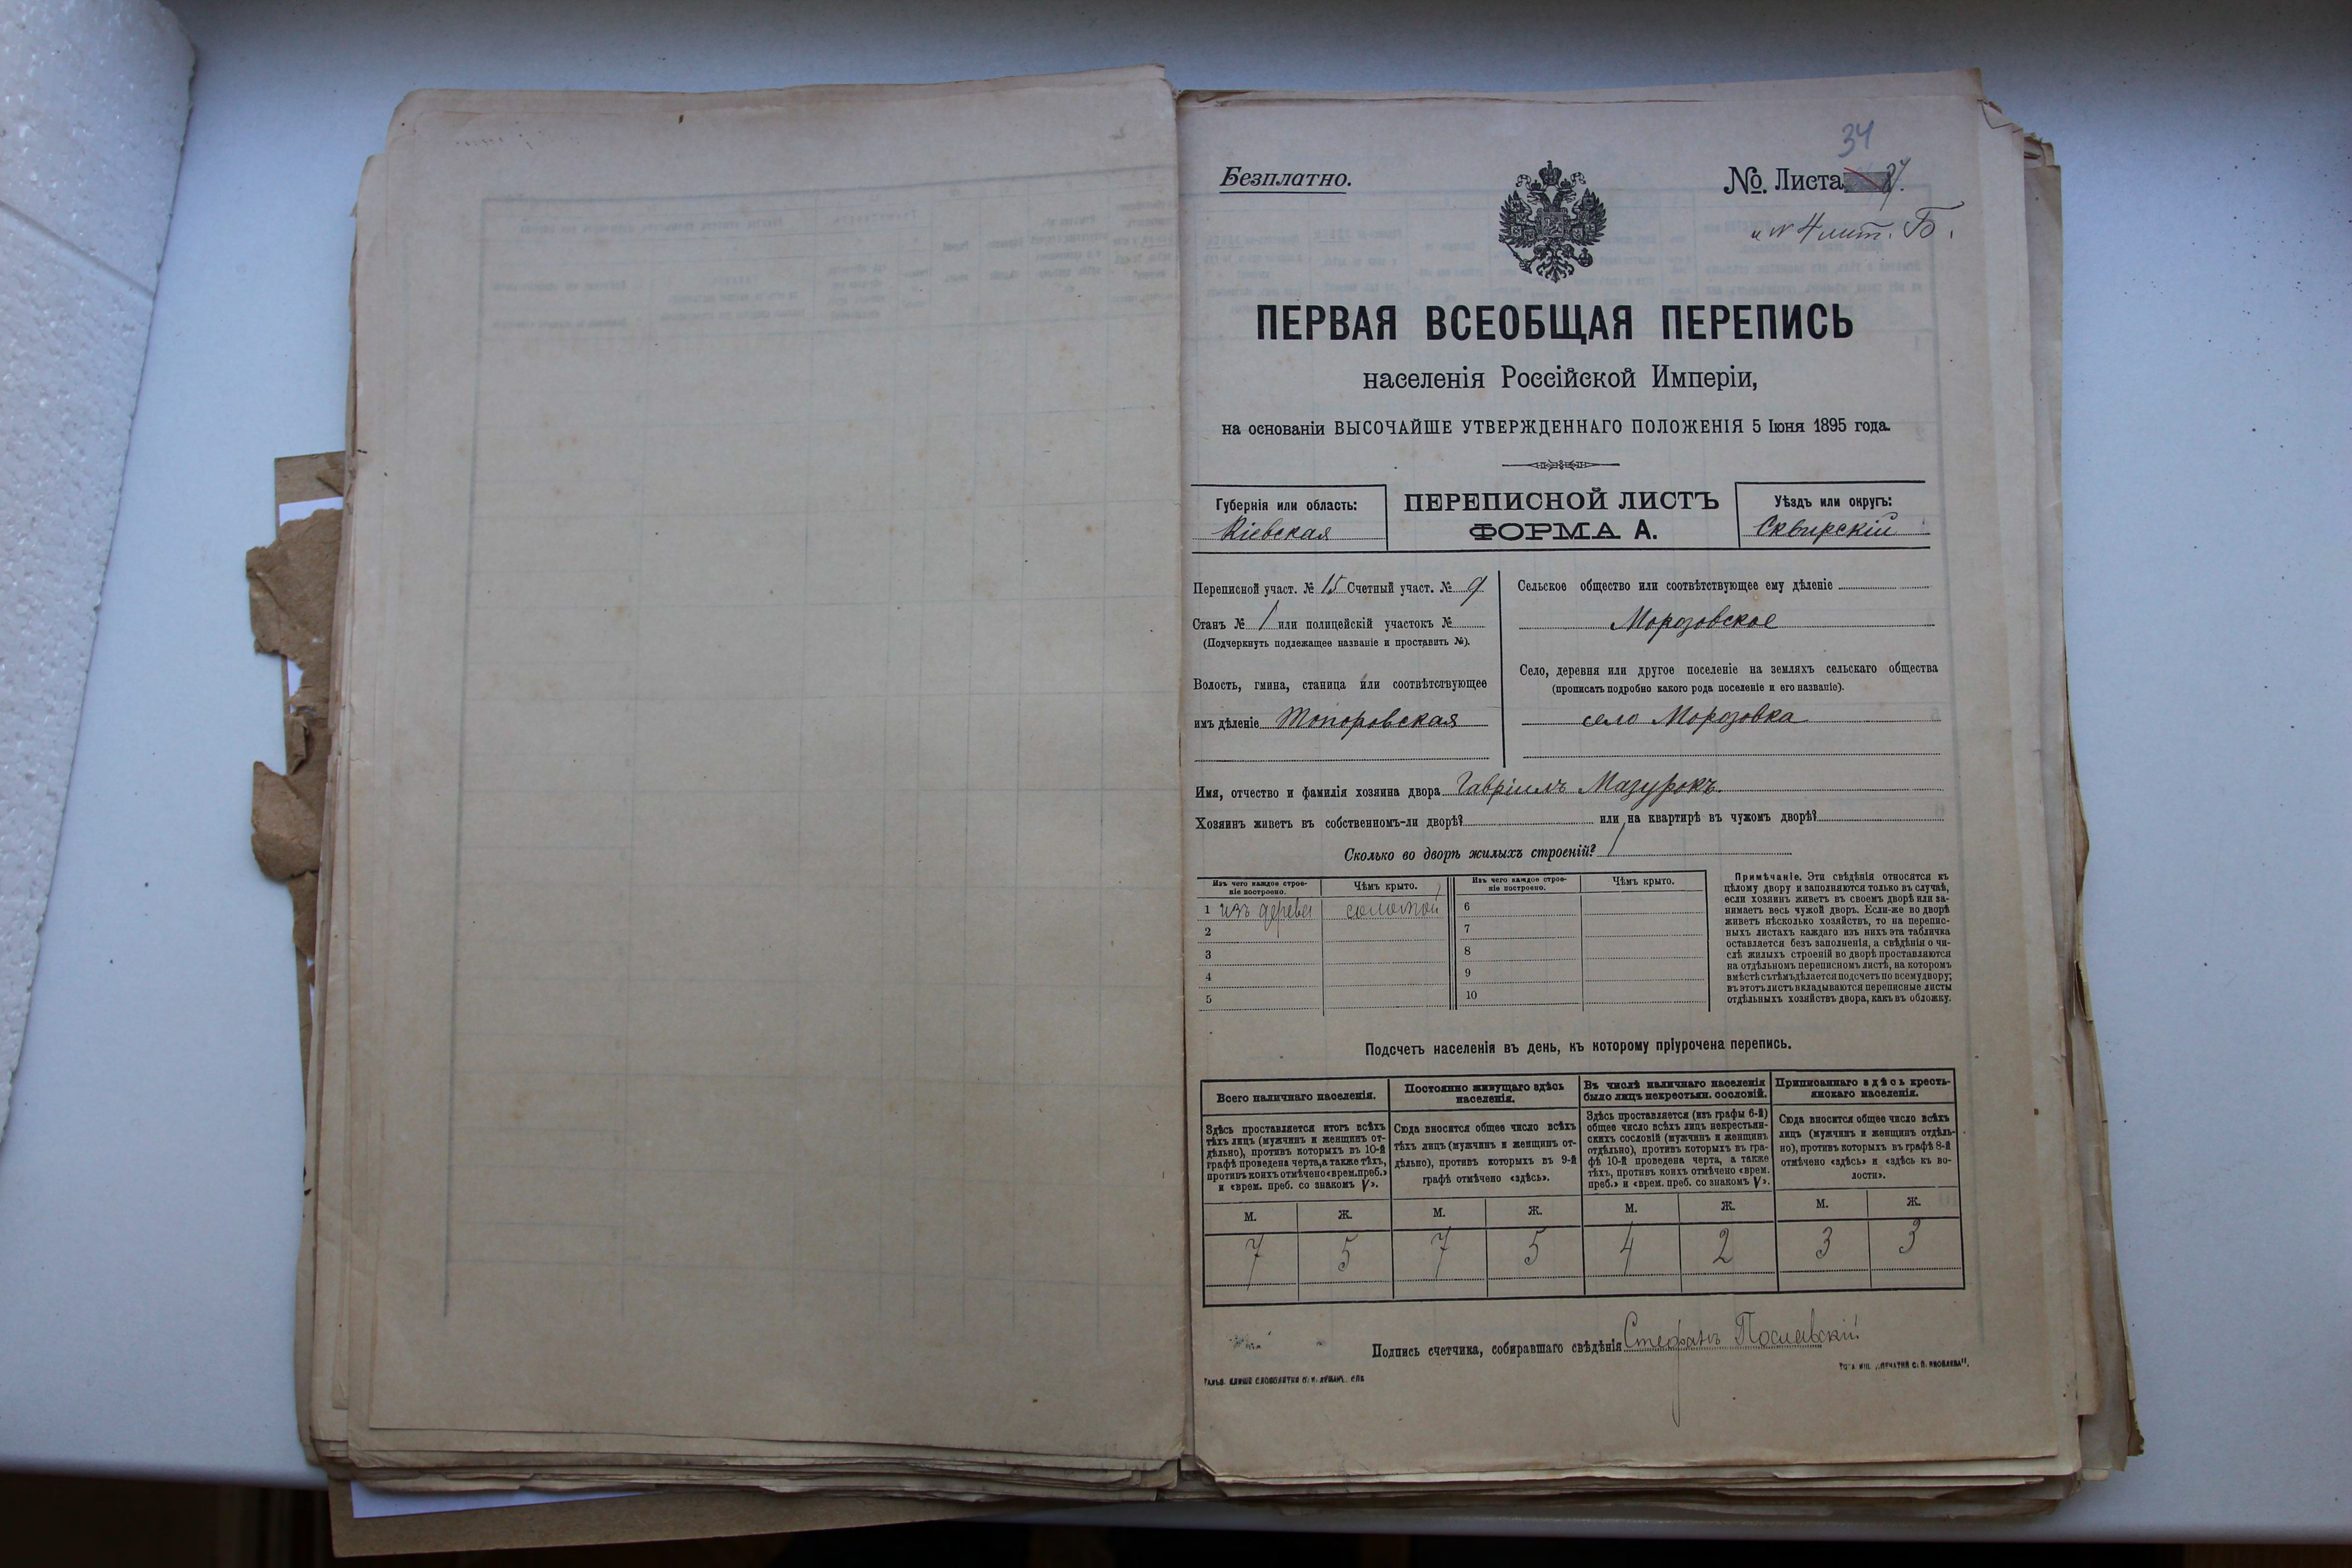 34
Безплатно.
№. Листа
и № 4 лит. Б.
ПЕРВАЯ ВСЕОБЩАЯ ПЕРЕПИСЬ
населенія Россійской Имперіи,
на основаніи ВЫСОЧАЙШЕ УТВЕРЖДЕННАГО ПОЛОЖЕНІЯ 5 Іюня 1895 года.
Губернія или область:
Кіевская
ПЕРЕПИСНОЙ ЛИСТЪ
ФОРМА А.
Уѣздъ или округъ:
Сквирскій
Переписной участ. № 15 Счетный участ. № 9
Станъ № 1 или полицейскій участокъ №
(Подчеркнуть подлежащее названіе и проставить №).
Волость, гмина, станица или соотвѣтствующее
имъ дѣленіе Топоровская
Сельское общество или соотвѣтствующее ему дѣленіе
Морозовское
Село, деревня или другое поселеніе на земляхъ сельскаго общества
(прописать подробно какого рода поселеніе и его названіе).
село Морозовка
Имя, отчество и фамилія хозяина двора Гавріилъ Мазурокъ.
Хозяинъ живетъ въ собственномъ-ли дворѣ? или на квартирѣ въ чужомъ дворѣ?
Сколько во дворѣ жилыхъ строеній? 1
Изъ чего каждое строе-
ніе построено.
Чѣмъ крыто.
1 изъ дерева соломой
2
3
4
5
Изъ чего каждое строе-
ніе построено.
Чѣмъ крыто.
6
7
8
9
10
Примѣчаніе. Эти свѣдѣнія относятся къ
цѣлому двору и заполняются только въ случаѣ,
если хозяинъ живетъ въ своемъ дворѣ или за-
нимаетъ весь чужой дворъ. Если-же во дворѣ
живетъ нѣсколько хозяйствъ, то на перепис-
ныхъ листахъ каждаго изъ нихъ эта табличка
оставляется безъ заполненія, а свѣдѣнія о чи-
слѣ жилыхъ строеній во дворѣ проставляются
на отдѣльномъ переписномъ листѣ, на которомъ
вмѣстѣ съ тѣмъ дѣлается подсчетъ по всему двору;
въ этотъ листъ вкладываются переписные листы
отдѣльныхъ хозяйствъ двора, какъ въ обложку.
Подсчетъ населенія въ день, къ которому пріурочена перепись.
Всего наличнаго населенія.
Здѣсь проставляется итогъ всѣхъ
тѣхъ лицъ (мужчинъ и женщинъ от-
дѣльно), противъ которыхъ въ 10-й
графѣ проведена черта, а также тѣхъ,
противъ коихъ отмѣчено «врем. преб.»
и «врем. преб. со знакомъ V».
Постоянно живущаго здѣсь
населенія.
Сюда вносится общее число всѣхъ
тѣхъ лицъ (мужчинъ и женщинъ от-
дѣльно), противъ которыхъ въ 9-й
графѣ отмѣчено «здѣсь».
Въ числѣ наличнаго населенія
было лицъ некрестьян. сословій.
Здѣсь проставляется (изъ графы 6-й)
общее число всѣхъ лицъ некрестьян-
скихъ сословій (мужчинъ и женщинъ
отдѣльно), противъ которыхъ въ гра-
фѣ 10-й проведена черта, а также
тѣхъ, противъ коихъ отмѣчено «врем.
преб.» и «врем. преб. со знакомъ V».
Приписаннаго здѣсь кресть-
янскаго населенія.
Сюда вносится общее число всѣхъ
лицъ (мужчинъ и женщинъ отдѣль-
но), противъ которыхъ въ графѣ 8-й
отмѣчено «здѣсь» и «здѣсь къ во-
лости».
М. Ж. М. Ж. М. Ж. М. Ж.
7 5 7 5 4 2 3 3
Подпись счетчика, собиравшаго свѣдѣнія Стефанъ Пославскій